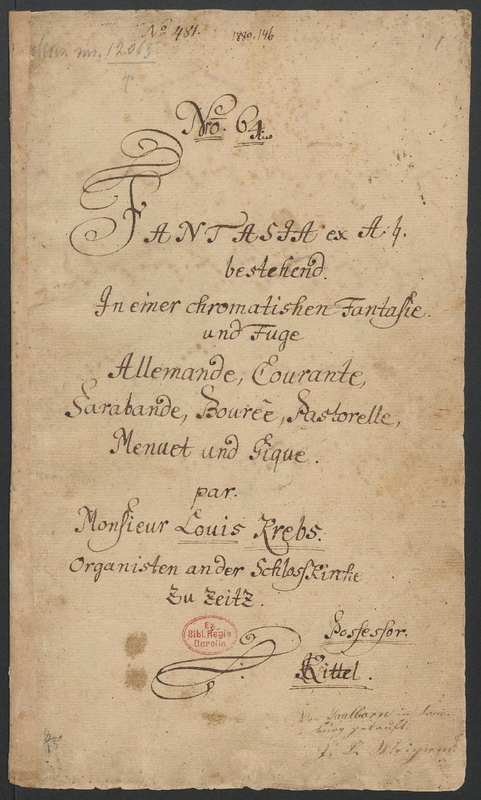 No 481.  1880,146
1
Mus. ms. 12013
4
Nro. 64.
FANTASIA ex A ♮.
bestehend.
In einer chromatishen Fantasie.
und Fuge
Allemande, Courante,
Sarabande, Boureè, Pastorelle,
Menuet und Gique.
par.
Monsieur Louis Krebs.
Organisten an der Schloss Kirche
Zu Zeitz.
Ex
Bibl. Regia
Berolin.
Possessor.
Kittel.
Von in
gekauft.